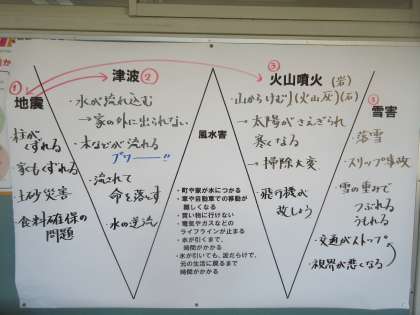 ① 地震
柱が
くずれる
家もくずれる
・土砂災害
・食料確保の
問題
津波 ②
・水が流れ込む
→家の外に出られない
・木などが流れる
・流されて
命を落とす
・水の逆流
風水害
・町や家が水につかる
・車や自動車での移動が
難しくなる
・買い物に行けない
・電気やガスなどの
ライフラインが止まる
・水が引くまで、
時間がかかる
・水が引いても、泥だらけで、
元の生活に戻るまで
時間がかかる
③
火山噴火 (岩)
・山からけむり(火山灰)(石)
→太陽がさえぎられ
寒くなる
→掃除大変
飛行機が
故しょう
③ 雪害
・落雪
・スリップ事故
・雪の重みで
つぶれる
うもれる
・交通がストップ
・視界が悪くなる